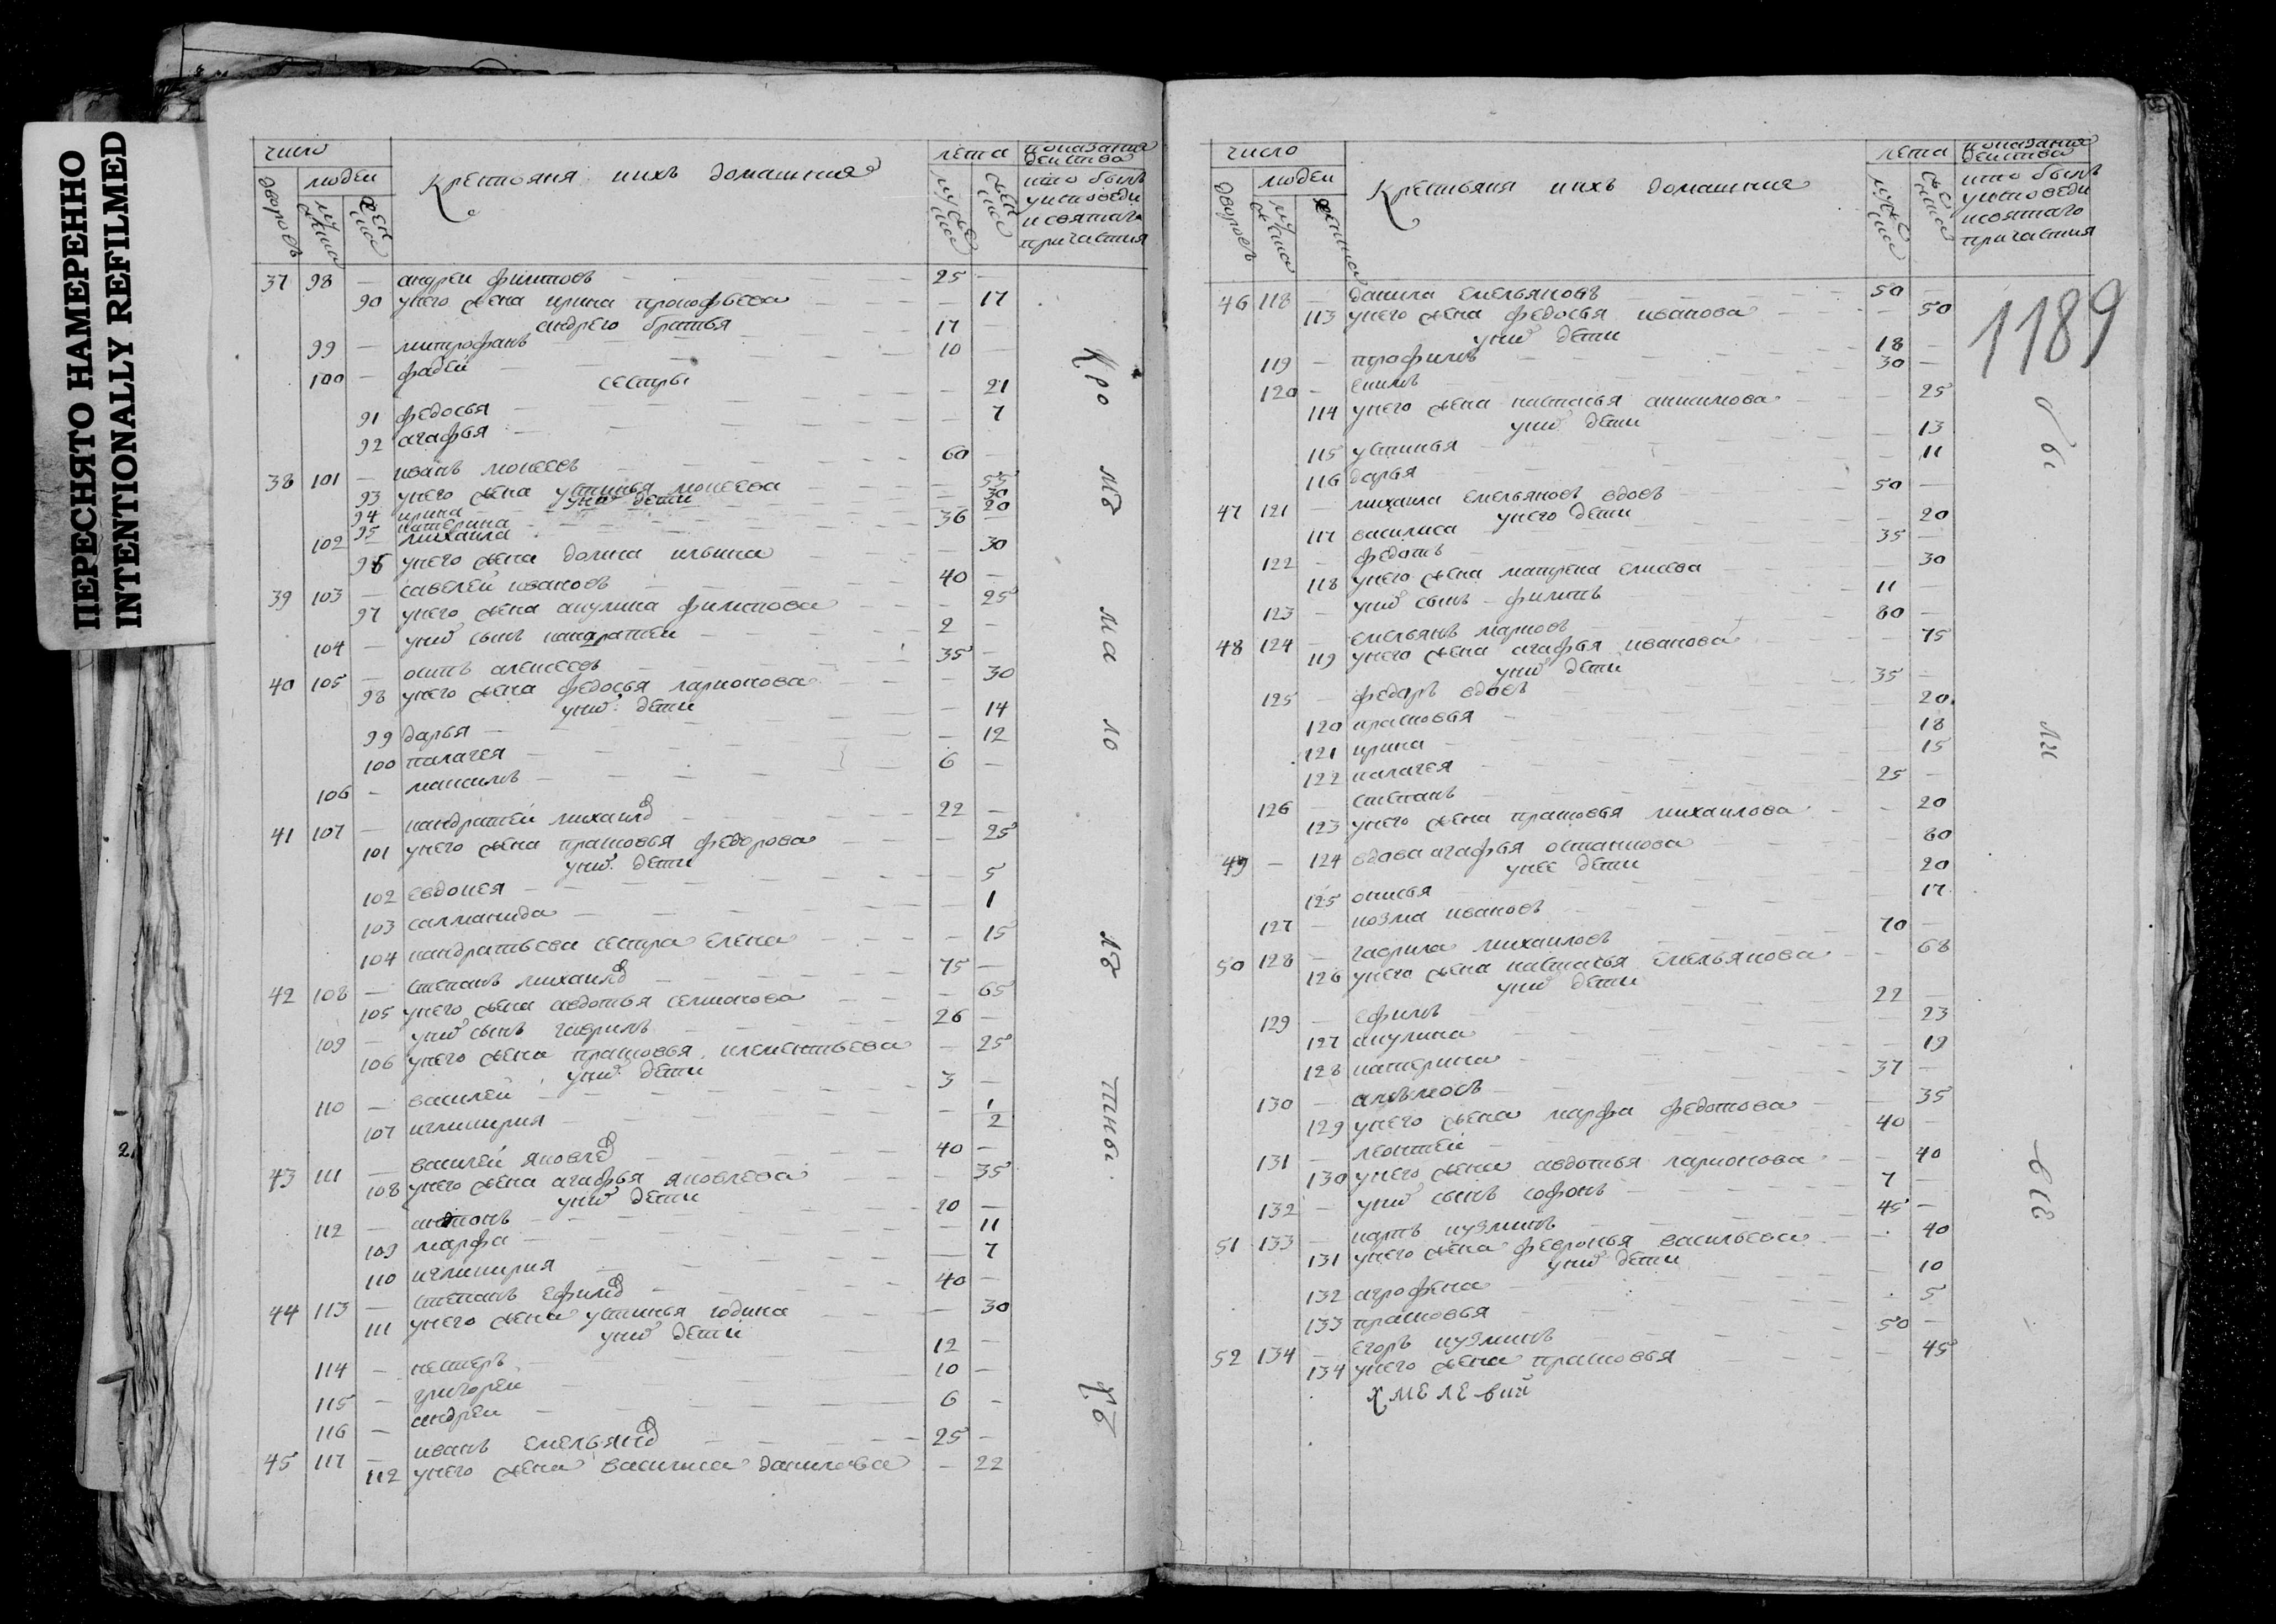 ПЕРЕСНЯТО НАМЕРЕННО
INTENTIONALLY REFILMED
число
людей
дворовъ
мужеска
женска
Крестьяня ихъ домашния
лета
мужеска
женска
показание действа
кто былъ
у исповеди
и святаго
причастия
37 98 — андрей филиповъ 25 —
90 у него жена ирина прокофьева — 17
андрего братья
99 — митрофанъ 17
100 — фадей 10 —
сестры
91 федосья — 21
92 агафья — 7
38 101 — иванъ моисеевъ 60 —
93 у него жена устинья моисеева — 55
у них дети
94 ирина — 30
95 катерина — 20
102 — михаила 36 —
96 у него жена домна ильина — 30
39 103 — савелей ивановъ 40 —
97 у него жена акулина филипова — 25
104 — у них сынъ кандратей 2 —
40 105 — осипъ алексеевъ 35 —
98 у него жена федосья ларионова — 30
у них дети
99 дарья — 14
100 палагея — 12
106 — максимъ 6 —
41 107 — кандратей михаилов 22 —
101 у него жена прасковья федорова — 25
у них дети
102 евдокея — 5
103 саламанида — 1
104 кандратьева сестра елена — 15
42 108 — степанъ михаилов 75 —
105 у него жена авдотья семионова — 65
109 — у них сынъ гаврилъ 26 —
106 у него жена прасковья клементьева — 25
у них дети
110 — василей 3 —
107 иглинирия — 1 2
43 111 — василей яковлев 40 —
108 у него жена агафья яковлева — 35
у них дети
112 — антонъ 20 —
109 марфа — 11
110 иглинирия — 7
44 113 — степанъ ефимов 40 —
111 у него жена устинья юдина — 30
у них дети
114 — нестеръ 12 —
115 — григорей 10 —
116 — андрей 6 —
45 117 — иванъ емельянов 25 —
112 у него жена василиса данилова — 22
Кро мѣ ма ло лѣ тны хъ
число
людей
дворовъ
мужеска
женска
Крестьяня ихъ домашния
лета
мужеска
женска
показание действа
кто былъ
у исповеди
и святаго
причастия
1189
46 118 — данила емельяновъ 50 —
113 у него жена федосья иванова — 50
у них дети
119 — трофимъ 18 —
120 — екимъ 30 —
114 у него жена настасья анисимова — 25
у них дети
115 устинья — 13
116 дарья — 11
47 121 — михаила емельяновъ вдовъ 50 —
у него дети
117 василиса — 20
122 — федотъ 35 —
118 у него жена матрена елисева — 30
123 — у них сынъ филипъ 11 —
48 124 — емельянъ марковъ 80 —
119 у него жена агафья иванова — 75
у них дети
125 — федоръ вдовъ 35 —
120 прасковья — 20
121 ирина — 18
122 палагея — 15
126 — степанъ 25 —
123 у него жена прасковья михаилова — 20
49 — 124 вдова агафья остапкова — 60
у нее дети
125 онисья — 20
127 — козма ивановъ 17
50 128 — гаврила михаиловъ 70 —
126 у него жена настасья емельянова — 68
у них дети
129 — ефимъ 22 —
127 акулина — 23
128 катерина — 19
130 — амвросъ 37 —
129 у него жена марфа федотова — 35
131 — леонтей 40 —
130 у него жена авдотья ларионова — 40
132 — у них сынъ софонъ 7 —
51 133 — карпъ кузминъ 45 —
131 у него жена февронья васильева — 40
у них дети
132 агрофена — 10
133 прасковья — 5
52 134 — егоръ кузминъ 50 —
134 у него жена прасковья — 45
хмелевий
бы ли все